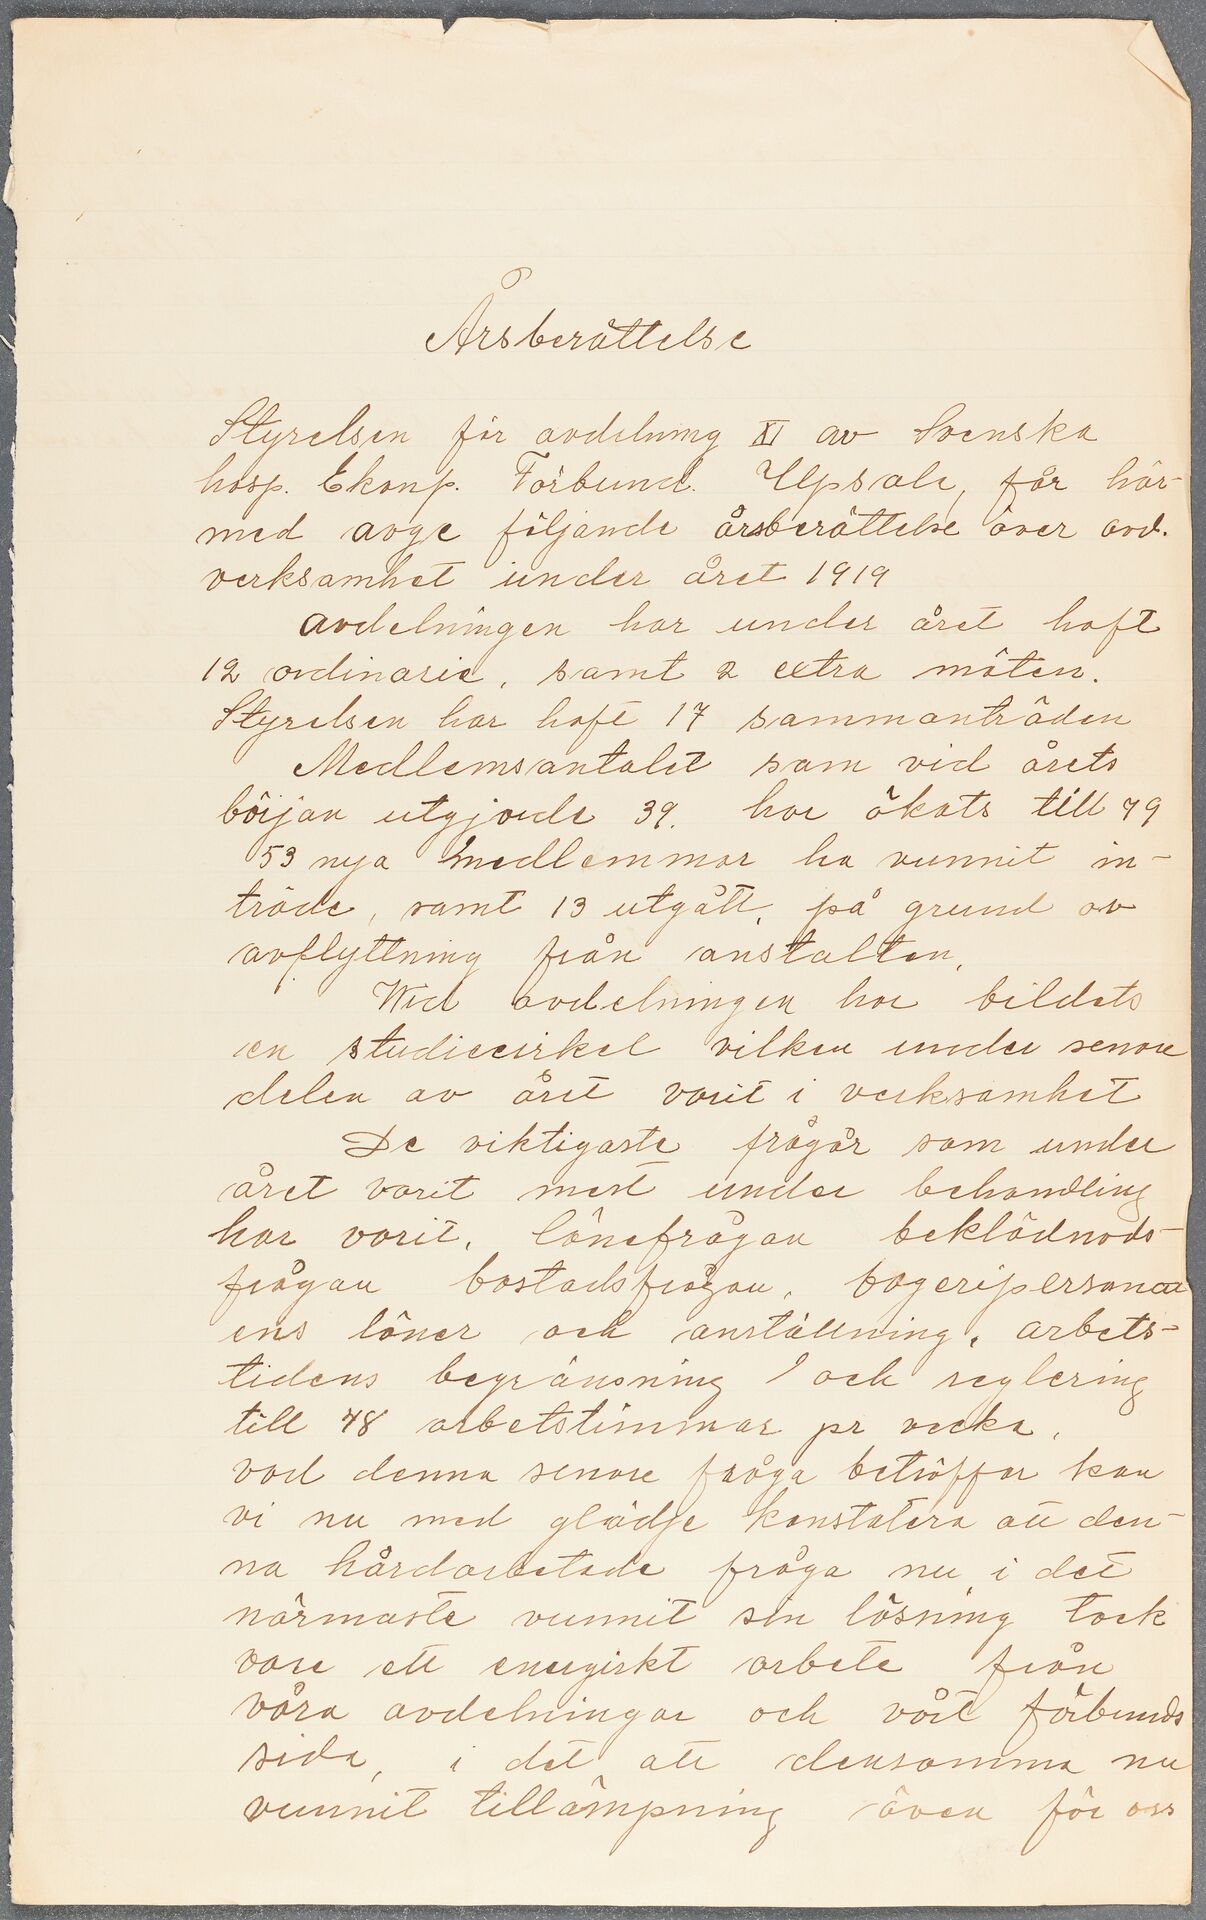 Årsberättelse
Styrelsen för avdelning XI av Svenska
hosp. Ekonp. Förbund. Upsala, får här-
med avge följande årsberättelse över avd.
verksamhet under året 1919
Avdelningen har under året haft
12 ordinarie, samt 2 extra möten.
Styrelsen har haft 17 sammanträden
Medlemsantalet som vid årets
början utgjorde 39. har ökats till 79
53 nya medlemmar ha vunnit in-
träde, samt 13 utgått, på grund av
avflyttning från anstalten.
Wid avdelningen har bildats
en studiecirkel vilken under senare
delen av året varit i verksamhet
De viktigaste frågår som under
året varit mest under behandling
har varit, lönefrågan beklädnads-
frågan bostadsfrågan, bageripersonal
ens löner och anställning, arbets-
tidens begränsning / och reglering
till 48 arbetstimmar pr vecka,
vad denna senare fråga beträffar kan
vi nu med glädje konstatera att den-
na hårdarbetade fråga nu i det
närmaste vunnit sin lösning tack
vare ett energiskt arbete från
våra avdelningar och vårt förbunds
sida, i det att densamma nu
vunnit tillämpning även för oss